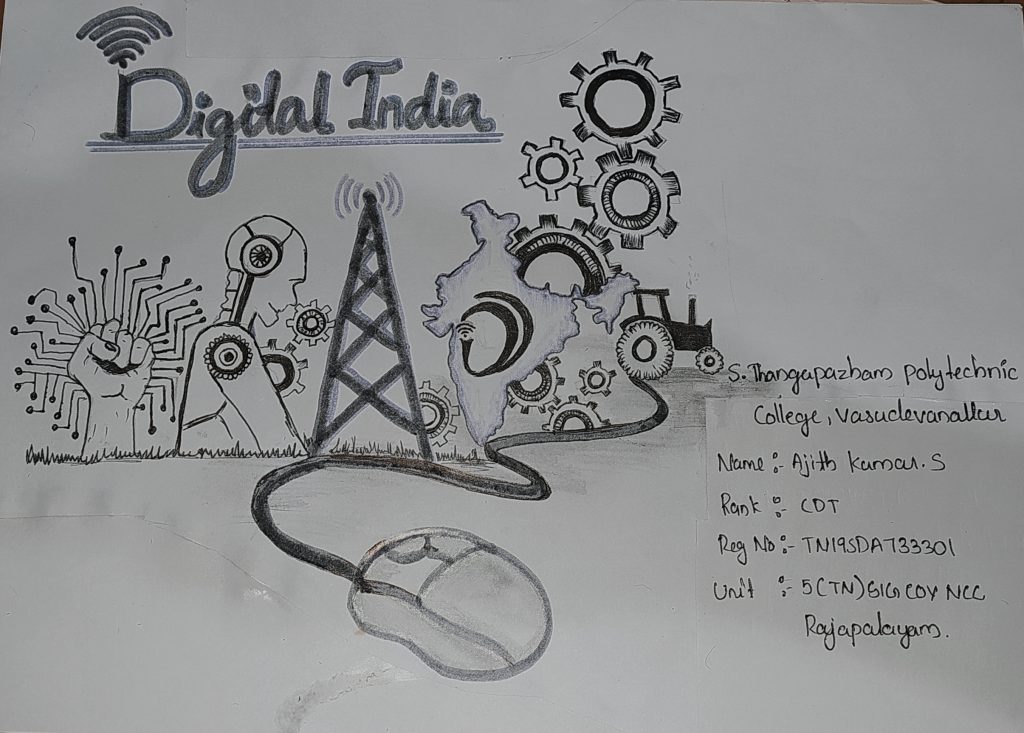 Digital India
S. Thangapazham Polytechnic
College, Vasudevanallur
Name :- Ajith Kumar. S
Rank :- CDT
Reg No :- TN19SDA733301
Unit :- 5(TN) SIG COY NCC
Rajapalayam.